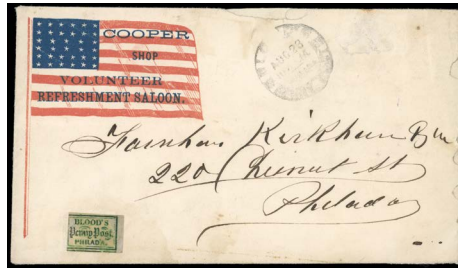 COOPER
SHOP
VOLUNTEER
REFRESHMENT SALOON.
AUG 23
Farnham Kirkham
220 Chesnut St
Philada
BLOOD'S
Penny Post.
PHILAD'A.